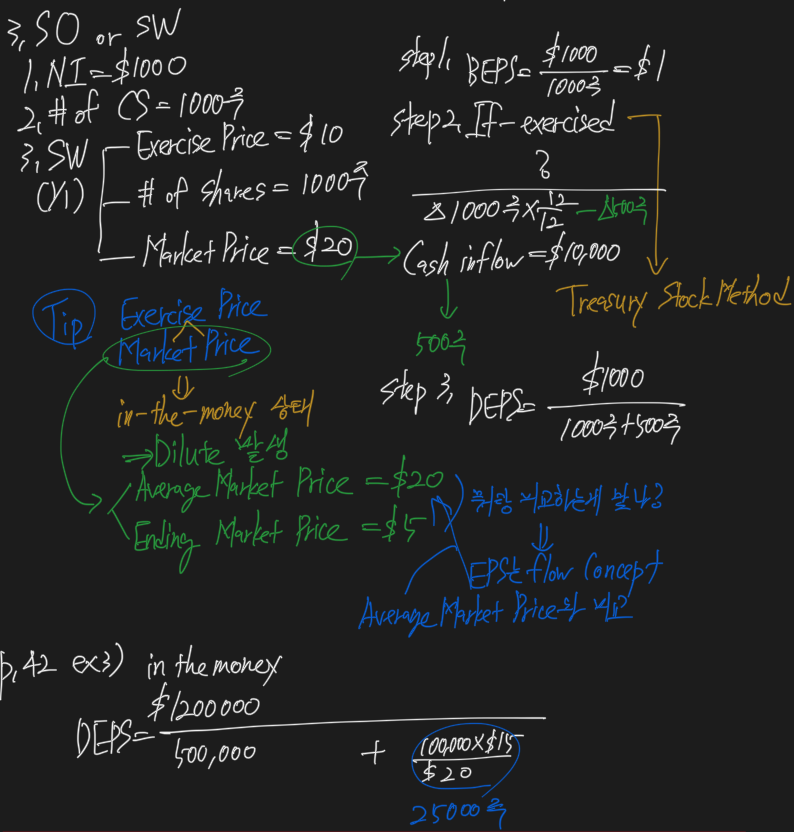 3, SO or SW
1, NI = $1000
2, # of CS = 1000주
3, SW (Y1)
Exercise Price = $10
# of shares = 1000주
Market Price = $20
step1, BEPS = $1000 / 1000주 = $1
step2, If-exercised
Treasury Stock Method
△1000주 × 12/12 - △500주
Cash inflow = $10,000
500주
step 3, DEPS = $1000 / 1000주+500주
Tip
Exercise Price
^
Market Price
⇓
in-the-money 상태
⇒ Dilute 발생
Average Market Price = $20
Ending Market Price = $15
뭐랑 비교하는게 맞나?
⇓
EPS는 flow Concept
Average Market Price와 비교
p,42 ex3) in the money
DEPS = $1200000 / 500,000 + 100,000×$15 / $20
25000주